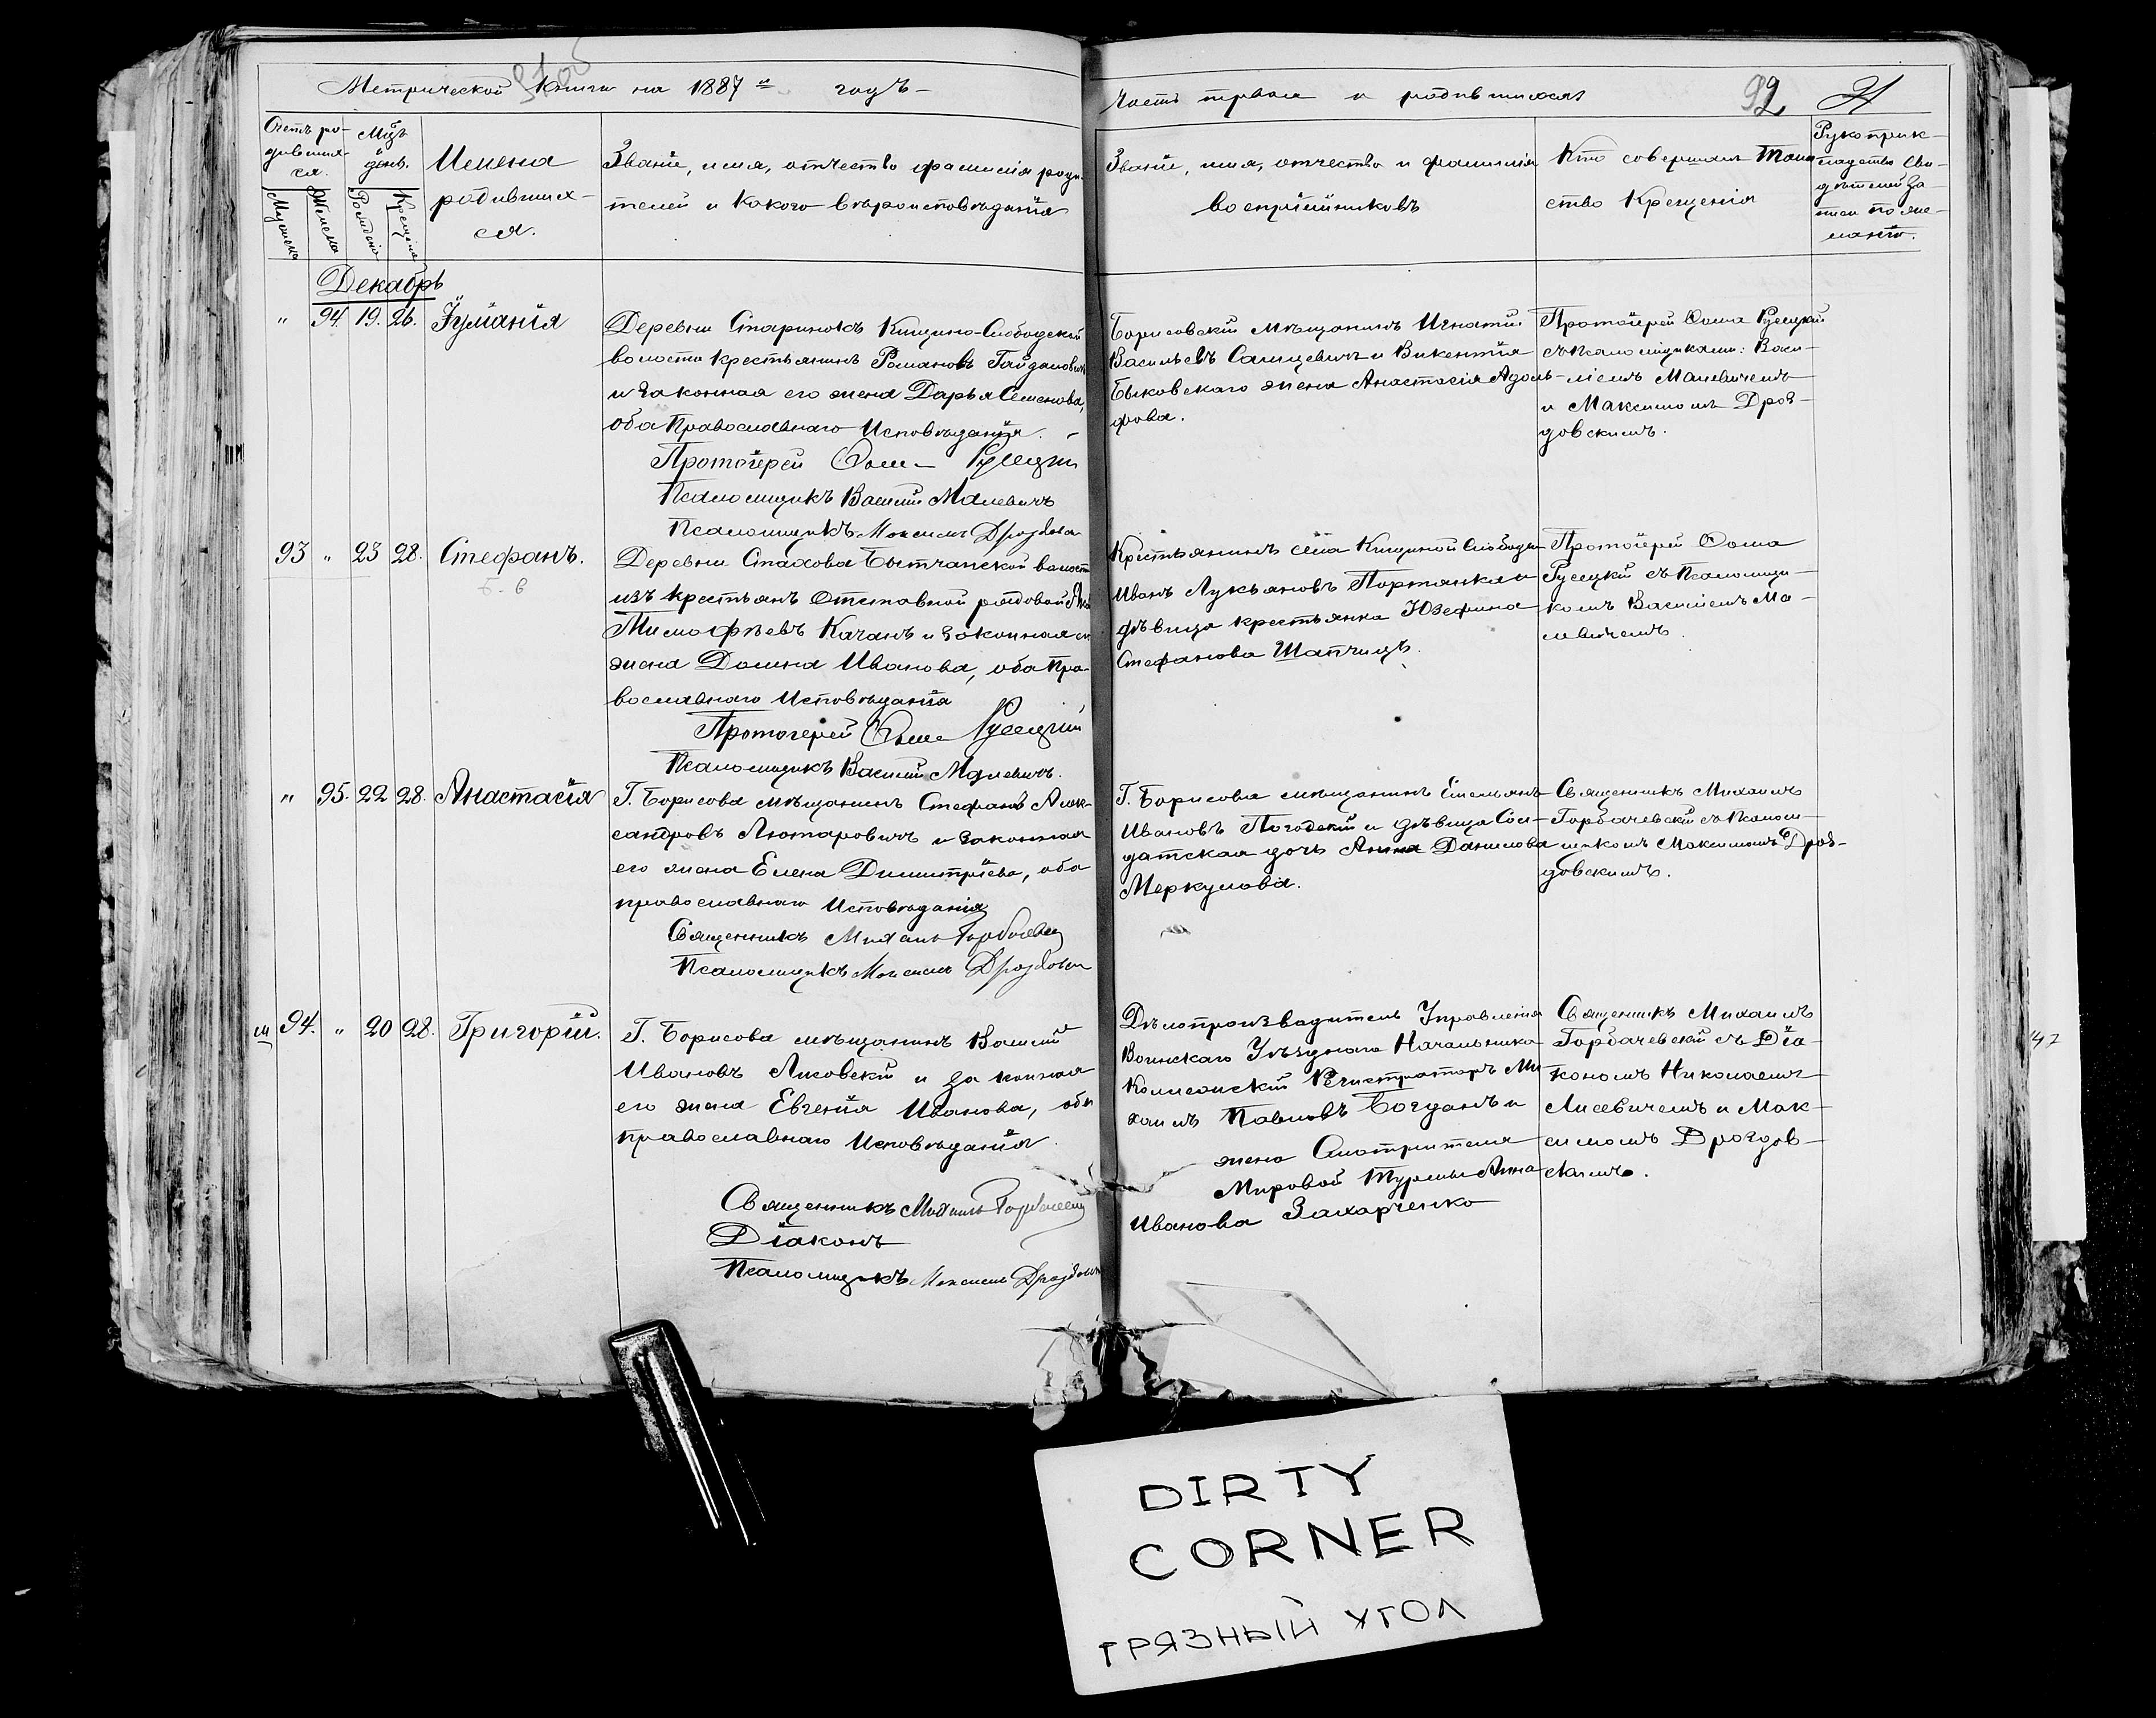 Метрической Книги на 1887й годъ
Часть первая о родившихся
92
Счетъ ро-
дивших-
ся.
Мужеска
Женска
Мѣс.
и день.
Рожденія
Крещенія
Имена
родивших-
ся.
Званіе, имя, отчество фамилія роди-
телей и какого вѣроисповѣданія
Званіе, имя, отчество и фамилія
воспріемниковъ
Кто совершалъ Таин
ство Крещенія
Рукоприк-
ладство сви-
дѣтелей за-
писи по же-
ланію.
Декабрь
" 94. 19. 26. Іуліанія
Деревни Старинокъ Кищино-Слободской
волости крестьянинъ Романовъ Гайдановичъ
и законная его жена Дарья Семенова,
оба Православнаго Исповѣданія.
Протоіерей Ѳома Русецкій
Псаломщикъ Василій Малевичъ
Псаломщикъ Максимъ Дроздовскій
Борисовскій мѣщанинъ Игнатій
Васильевъ Сапцевичъ и Викентія
Быковскаго жена Анастасія Адоль-
фова.
Протоіерей Ѳома Русецкій
съ псаломщиками: Васи-
ліемъ Малевичемъ
и Максимомъ Дроз-
довскимъ.
93 " 23 28. Стефанъ.
Деревни Стахова Бытчанской волости
изъ крестьянъ Отставной рядовой
Тимофѣевъ Качанъ и законная его
жена Домна Иванова, оба Пра-
вославнаго Исповѣданія
Протоіерей Ѳома Русецкій
Псаломщикъ Василій Малевичъ.
Крестьянинъ села Кищиной Слободы
Иванъ Лукьяновъ Портянка и
дѣвица крестьянка Юзефина
Стефанова Шапчицъ.
Протоіерей Ѳома
Русецкій съ Псаломщи-
комъ Василіемъ Ма-
левичемъ.
" 95. 22 28. Анастасія
Г. Борисова мѣщанинъ Стефанъ Алек-
сандровъ Лютаровичъ и законная
его жена Елена Димитріева, оба
православнаго Исповѣданія
Священникъ Михаилъ Горбачевскій
Псаломщикъ Максимъ Дроздовскій
Г. Борисова мѣщанинъ Емельянъ
Ивановъ Погодскій и дѣвица Сол-
датская дочь Анна Данилова
Меркулова.
Священникъ Михаилъ
Горбачевскій съ Псалом-
щикомъ Максимомъ Дроз-
довскимъ.
94. " 20 28. Григорій.
Г. Борисова мѣщанинъ Василій
Ивановъ Лисовскій и законная
его жена Евгенія Иванова, оба
православнаго Исповѣданія.
Священникъ Михаилъ Горбачевскій
Діаконъ
Псаломщикъ Максимъ Дроздовскій
Дѣлопроизводитель Управленія
Воинскаго Уѣзднаго Начальника
Коллежскій Регистраторъ Ми
хаилъ Павловъ Богданъ и
жена Смотрителя
Мировой Тюрьмы Анна
Иванова Захарченко
Священникъ Михаилъ
Горбачевскій съ Діа-
кономъ Николаемъ
Лисевичемъ и Мак-
симомъ Дроздов-
скимъ.
47
DIRTY
CORNER
ГРЯЗНЫЙ УГОЛ